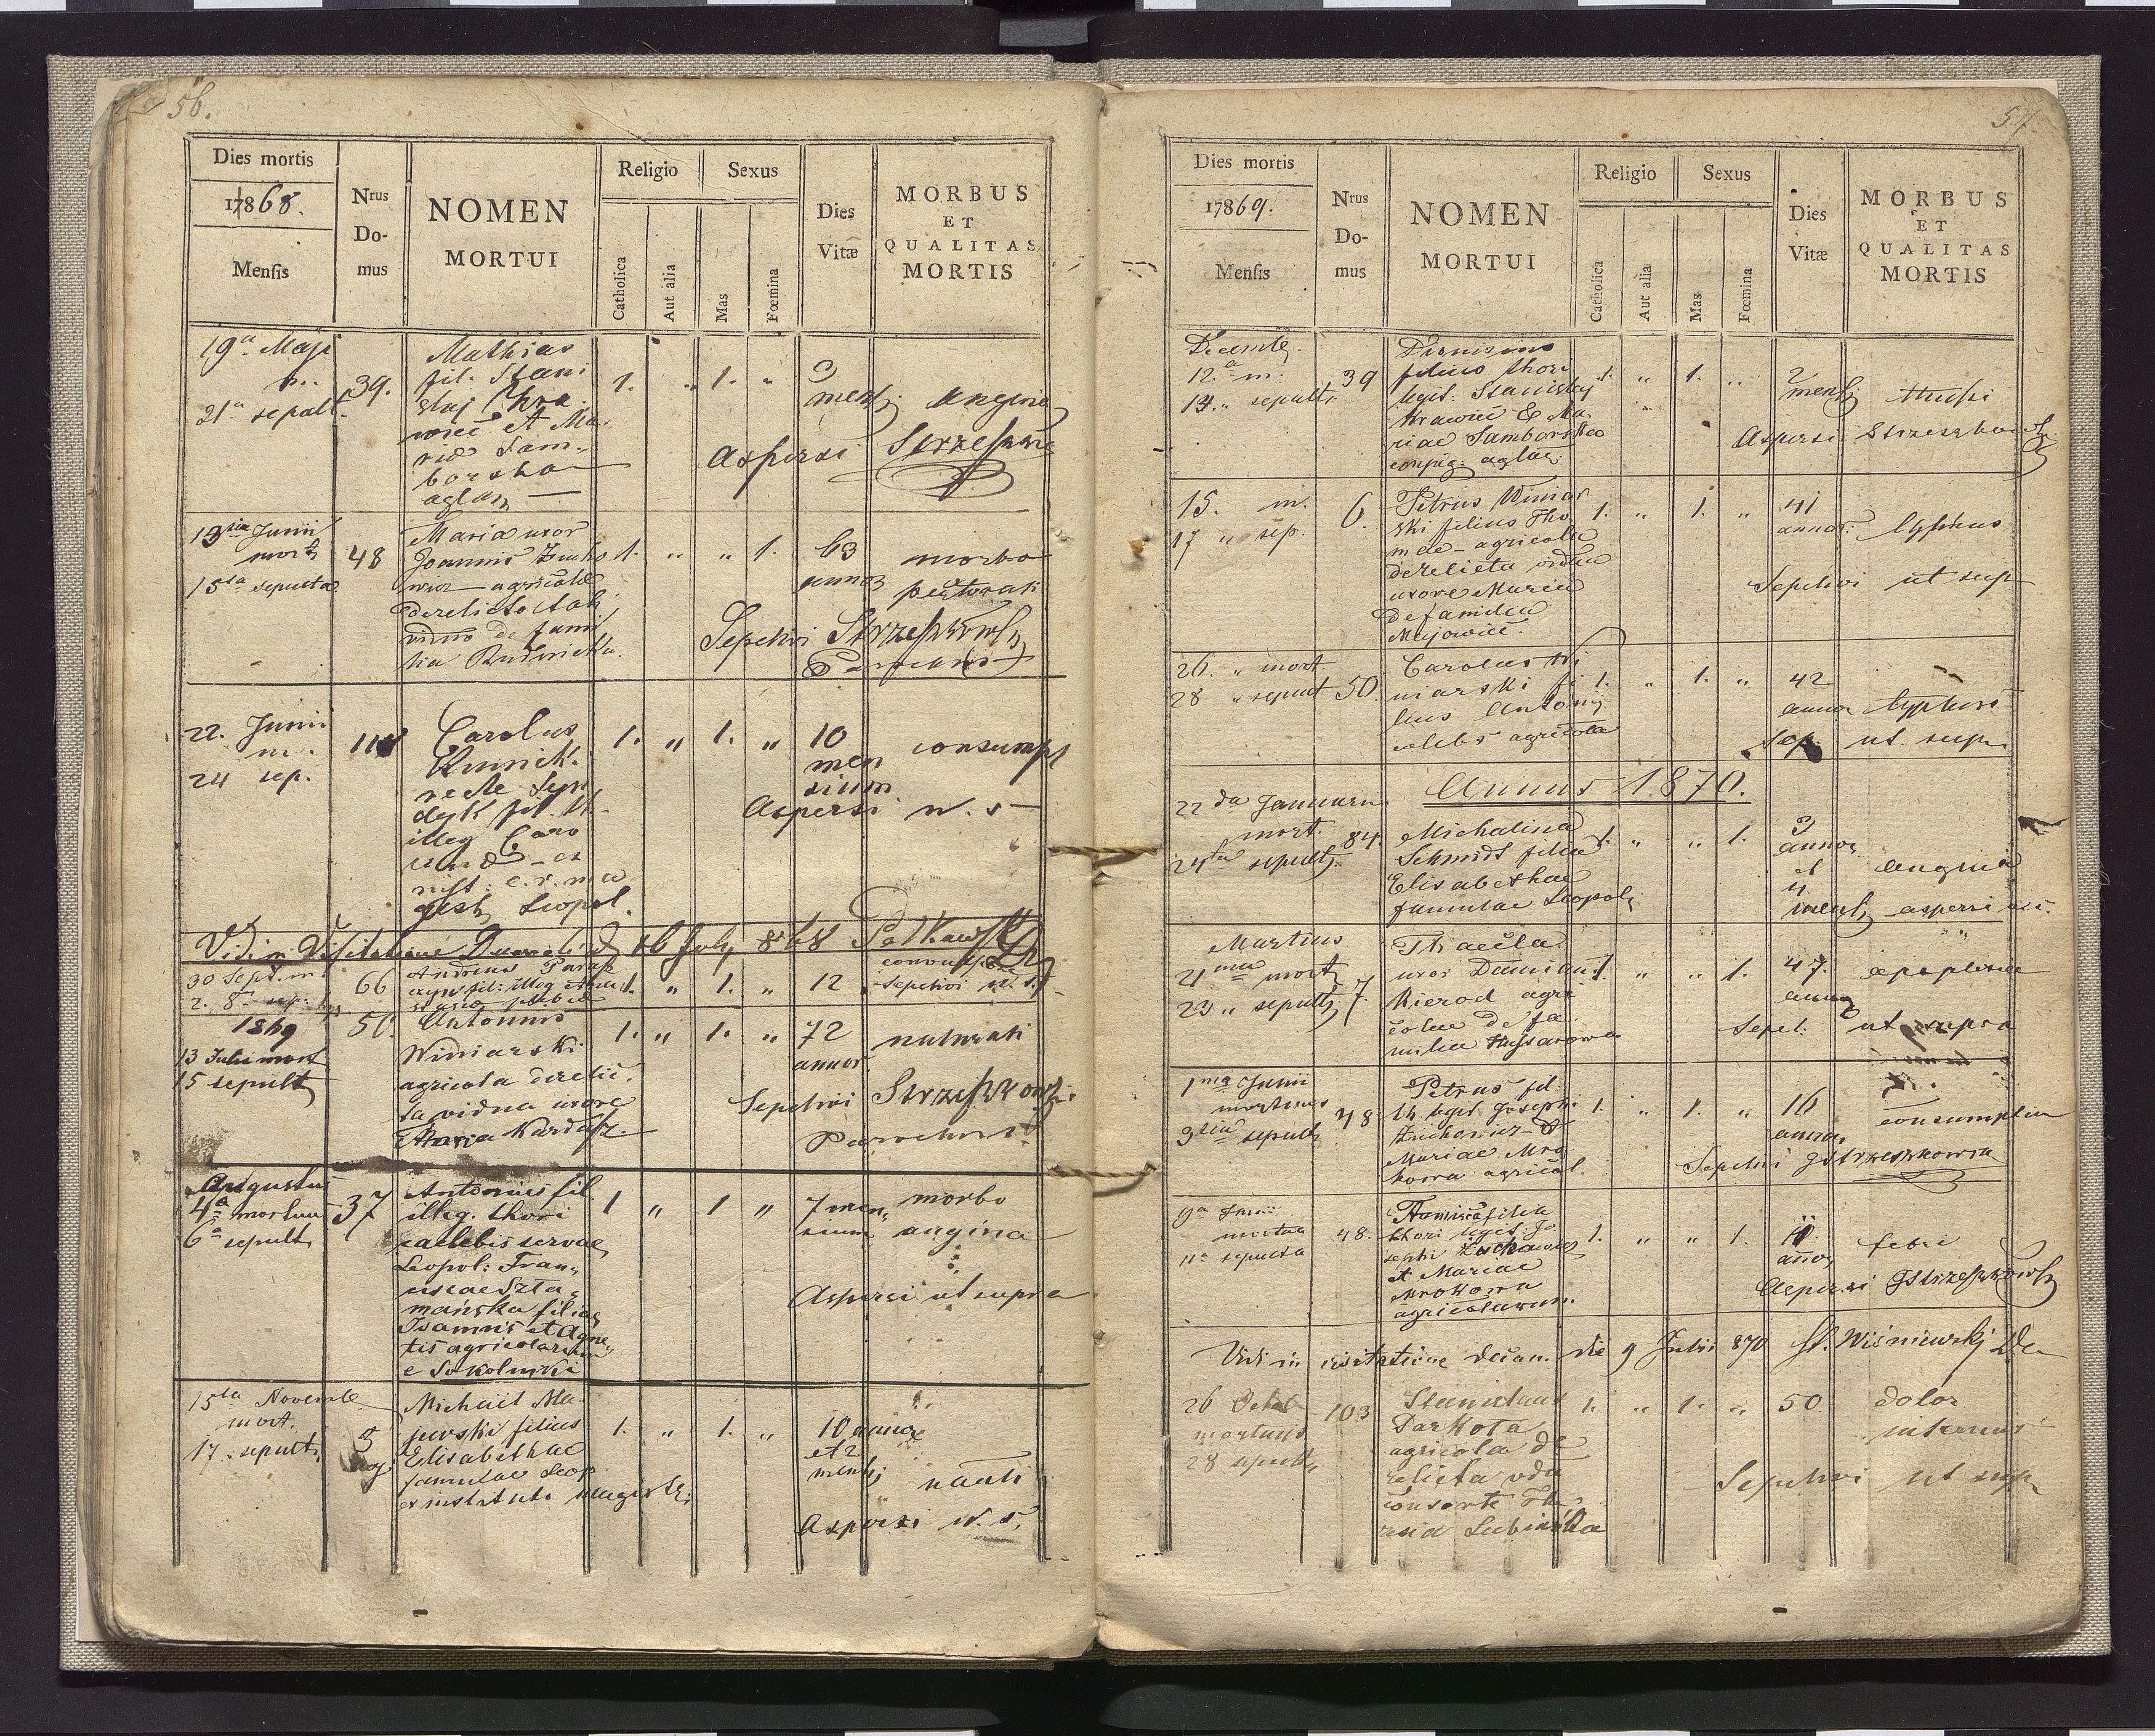 56.
Dies mortis
17868.
Mensis
Nrus Do-mus
NOMEN MORTUI
Religio
Catholica
Aut alia
Sexus
Mas
Fœmina
Dies Vitæ
MORBUS ET QUALITAS MORTIS
19a Maji
m.
21a sepult.
39.
Mathias
fil. Stani
slai Kra
wiec et Ma
riæ Sam-
borska
aglar
1. " 1. "
3
mens
angina
Aspersi
13tia Junii
mort
15ta sepulta
48
Maria uxor
Joannis Zucho
wicz agricolæ
derelicto stabi
viduo de fami
lia Rudnicka.
1. " " 1.
63
annor
morbo
pectorali
Sepelivi Strzeszkowsk
22. Junii
m.
24 sep.
Carolus
Kunick.
recte Syn
dyk fil. th
illeg Caro
inst. c. r. ma
gist Leopol.
1. " 1. "
10
men
sium
consumpt
Aspersi u. s
Vidi in Visitatione Decanali d 16 July 868
30 Sept. m
2. 8 sep.
66
Andreas
1. " 1. "
12
Sepelivi u. s.
1869
13 Julii mort
15 sepult
50.
Antonius
Winiarski
agricola derelic.
ta vidua uxore
Maria Kardasz
1. " 1. "
72
annor.
naturali
Sepelivi Strzeszkowsk.
Parochus
Augustus
4a mortuus
6a sepult
37
Antonius fil
illeg. thori
caelebis servae
Leopol: Fran,,
ciscae Szta,,
mańska filiae
Joannis et Agne,,
tis agricolarum
e Sokolniki
1 " 1 "
7 men,,
sium
morbo
angina
Aspersi ut supra
15ta Novembr
mort.
17. sepult
5
Michael Ma
jewski filius
Elisabethae
famulae Leop
ex instituto magistr
1. " 1. "
10 annor
et 2
mens
Aspersi u. s.
57.
Dies mortis
17869.
Mensis
Nrus Do-mus
NOMEN MORTUI
Religio
Catholica
Aut alia
Sexus
Mas
Fœmina
Dies Vitæ
MORBUS ET QUALITAS MORTIS
Decembr.
12.a m.
14. " sepult.
39
Dionisius
filius thori
legit. Stanislaj
Krawiec & Ma-
riae Samborska
conjug. aglar
1. " 1. "
2
mens
tussi
Aspersi
15. m.
17 " sep.
6.
Petrus Winiar
ski filius Tho
mae - agricola
derelicta vidua
uxore Maria
de familia
Majowicz.
1. " 1. "
41
annor.
typhus
Sepelivi ut sup
26. " mort
28 " sepult
50.
Carolus Wi
niarski fi
lius Antonij
celebs agricola
1. " 1. "
42
annor
typhus
sep. ut. sup.
Annus 1870.
22da Januarii
mort.
24ta sepult.
84.
Michalina
Schmidt filia
Elisabethae
famulae Leopol
1. " " 1.
3
annor
et
4
mens
angina
aspersi u. s.
Martius
21ma mort
23 " sepult.
7.
Thaecla
uxor Damiani
Kierod agri
colae de fa
milia Hussarowa
1. " " 1.
47.
annor
apoplexia
Sepel. ut supra
1ma Junii
mortuus
3tia sepult
48
Petrus fil.
th. legit. Josephi
Zuchowicz &
Mariae Mro
kowa agricol.
1. " 1. "
16
annor
consumptio
Sepelivi JStrzeszkowski
9a Junii
mortua
11a sepulta
48.
filia
thori legit. Jo
sephi Zuchowicz
et Mariae
Mrokowa
agricolarum.
1. " " 1.
annor
febri
Aspersi JStrzeszkowsk
Vidi in visitatione decan. die 9 Julii 870 St. Wiśniewski De
26 Octob
mortuus
28 sepult
103
Stanislaus
Darkota
agricola de
relicta vidu
consorte The
resia Lubinska
1. " 1. "
50
dolor
internus
Sepelivi ut sup